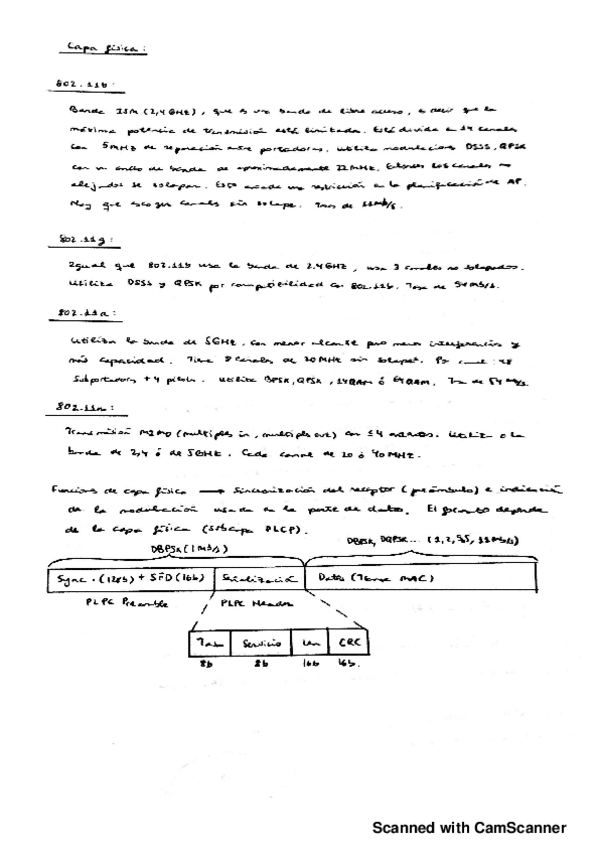 Capa física:
802.11b:
Banda ISM (2,4GHz), que es una banda de libre acceso, es decir que la
máxima potencia de transmisión está limitada. Está dividida en 14 canales
con 5MHz de separación entre portadoras. Utiliza modulaciones DSSS, QPSK
con un ancho de banda de aproximadamente 22MHz. Entonces los canales no
alejados se solapan. Esto añade una restricción en la planificación de AP.
Hay que escoger canales sin solape. Tasa de 11Mb/s.
802.11g:
Igual que 802.11b usa la banda de 2.4GHz, usa 3 canales no solapados.
Utiliza DSSS y QPSK por compatibilidad con 802.11b. Tasa de 54Mb/s.
802.11a:
Utilizan la banda de 5GHz, con menor alcance pero menos interferencias y
más capacidad. Tiene 8 canales de 20MHz sin solape. Por canal: 48
Subportadoras + 4 pilotos. Utiliza BPSK, QPSK, 16QAM ó 64QAM. Tasa de 54Mb/s.
802.11n:
Transmisión MIMO (multiples in, multiples out) con antenas. Utiliza o la
banda de 2,4 ó de 5GHz. Cada canal de 20 ó 40MHz.
Funciones de capa física → Sincronización del receptor (preámbulo) e indicación
de la modulación usada en la parte de datos. El formato depende
de la capa física (subcapa PLCP).
DBPSK (1Mb/s) DBPSK, DQPSK... (1, 2, 5,5, 11Mb/s)
Sync. (128b) + SFD (16b) Señalización Datos (Trama MAC)
PLPC Preamble PLPC Header
Tasa Servicio Len CRC
8b 8b 16b 16b.
Scanned with CamScanner